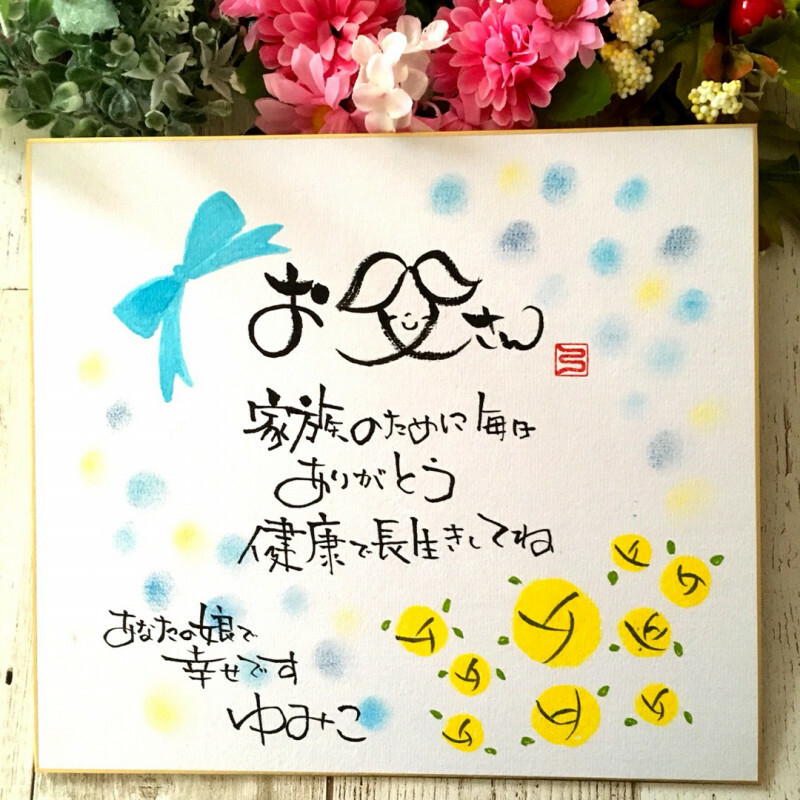 お父さん
家族のために毎日
ありがとう
健康で長生きしてね
あなたの娘で
幸せです
ゆみこ